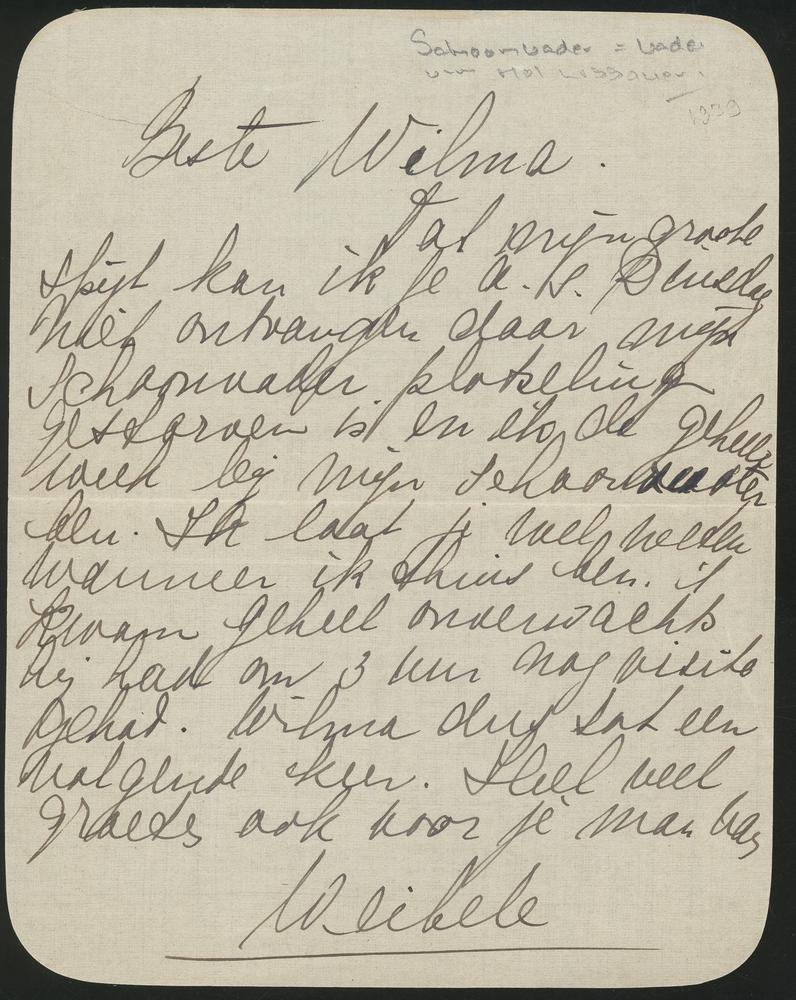 Schoonvader = vader
van Mol Lissauer.
1939
Beste Wilma.
Tot mijn groote
spijt kan ik je a.s. Dinsdag
niet ontvangen daar mijn
schoonvader plotseling
gestorven is en ik de geheele
week bij mijn schoonmoeder
ben. Ik laat je wel weten
wanneer ik thuis ben. 't
kwam geheel onverwachts
hij had om 3 uur nog visite
gehad. Wilma dus tot een
volgende keer. Heel veel
groetes ook voor je man van